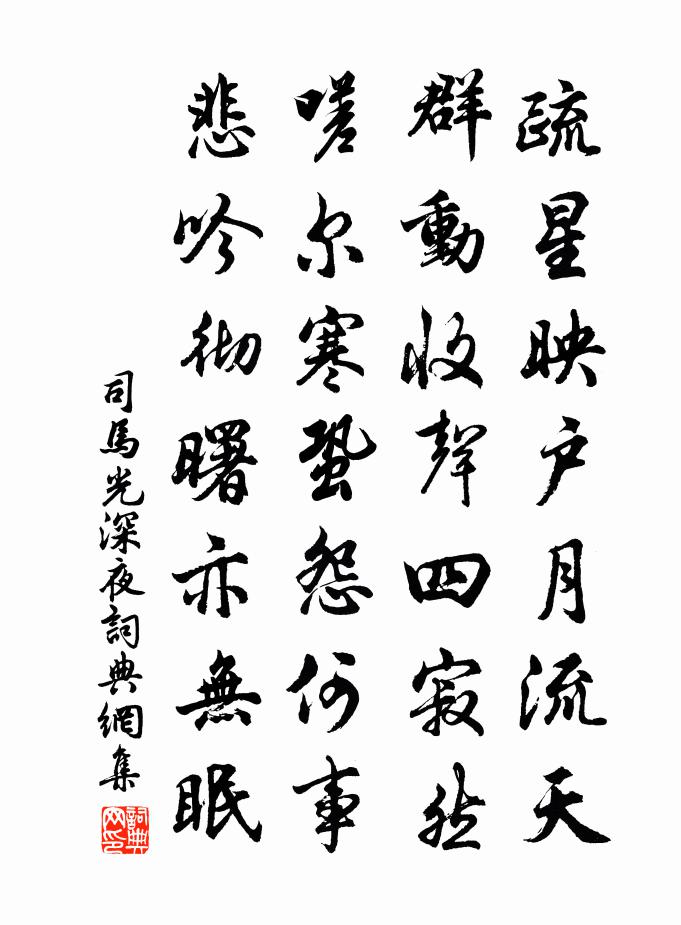 疏星映户月流天
群動收聲四寂然
嗟尔寒蛩怨何事
悲吟彻曙亦無眠
司馬光深夜詞典網集
詞典网印